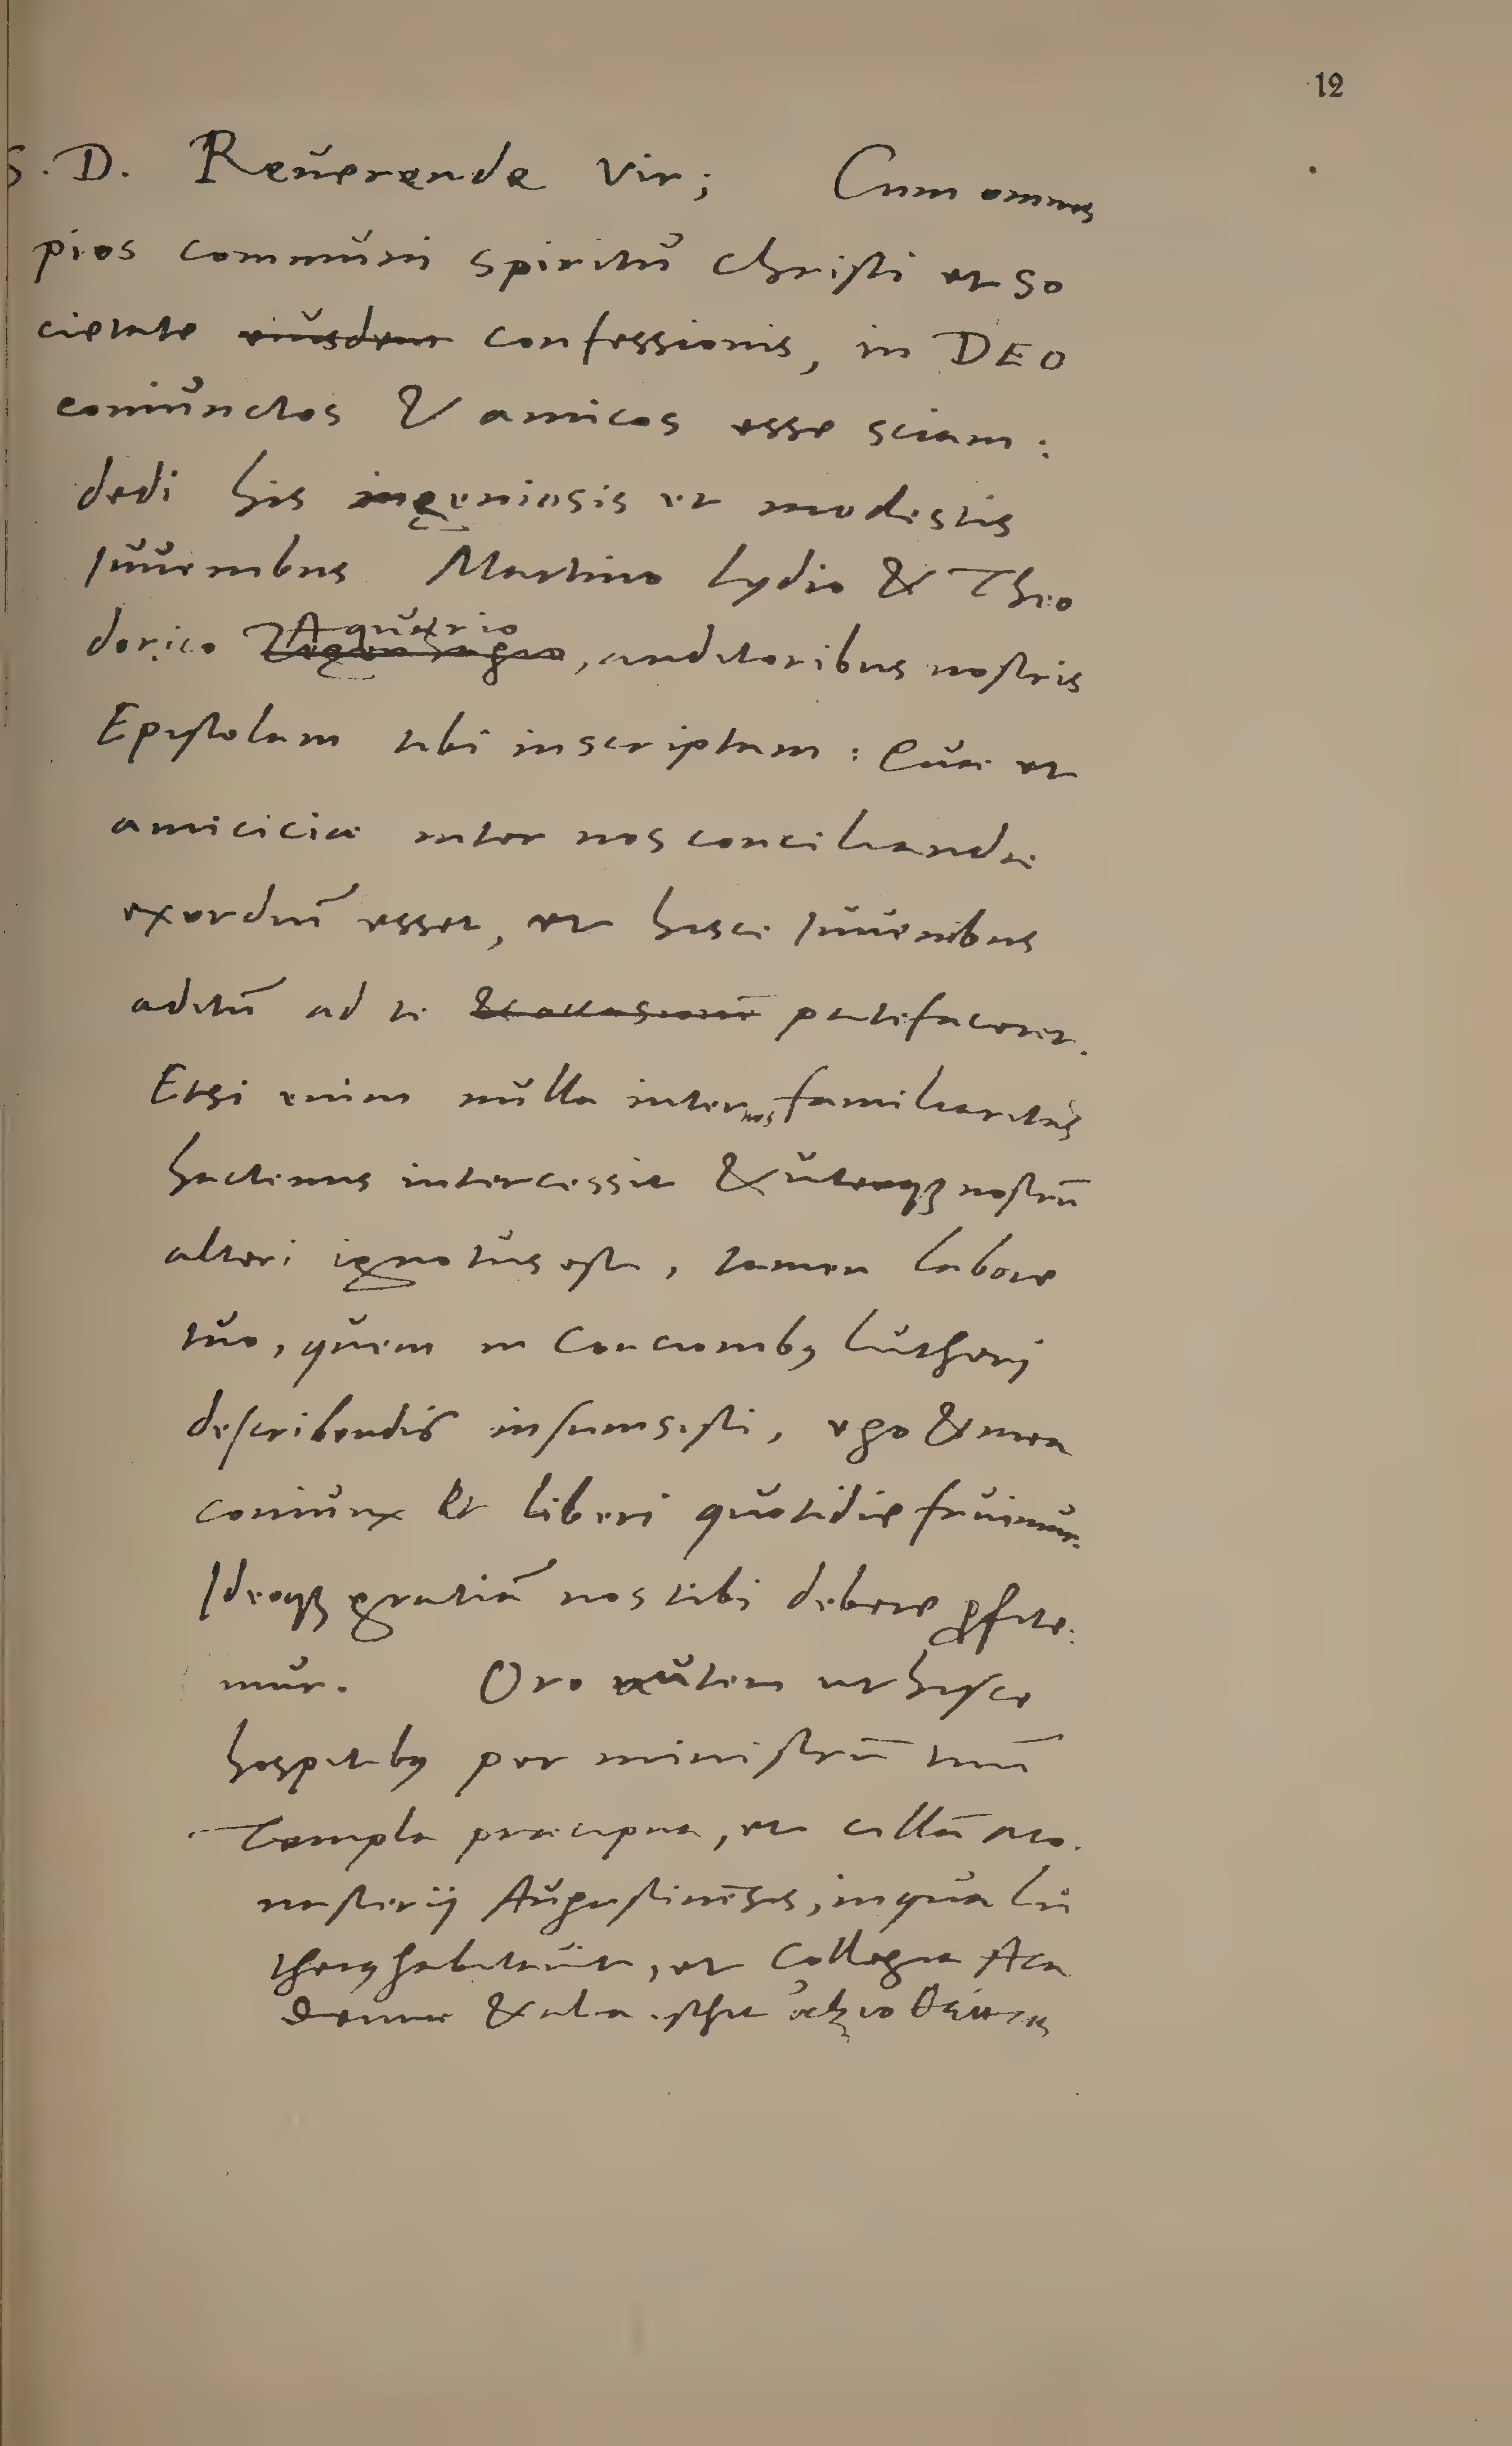 12
S. D. Reuerende vir; Cum omnes
pios communi spiritu Christi et so
cietate eiusdem confessionis, in DEO
coniunctos & amicos esse sciam:
dedi his ingeniosis et modestis
Iuuenibus Martino Lydio & Theo
dorico Aquario, auditoribus nostris
Epistolam tibi inscriptam: Quae et
amiciciae inter nos conciliandae
exordiũ esset, et hisce Iuuenibus
aditũ ad te & occasionẽ patefaceret.
Etsi enim nulla inter nos familiaritas
hactenus intercessit & uterqꝫ nostrũ
alteri ignotus est, tamen labore
tuo, quem in Concionibꝰ Lutheri
describendis insumsisti, ego & mea
coniunx et liberi quotidie fruimur.
Ideoqꝫ gratiã nos tibi debere ꝓfite:
mur. Oro autem ut hisce
hospitibꝰ per ministrũ tuũ
Templa praecipua, et cellã mo.
nasterij Augustinẽsis, in qua Lu
therꝰ habitauit, et Collegia Aca
demiae & alia